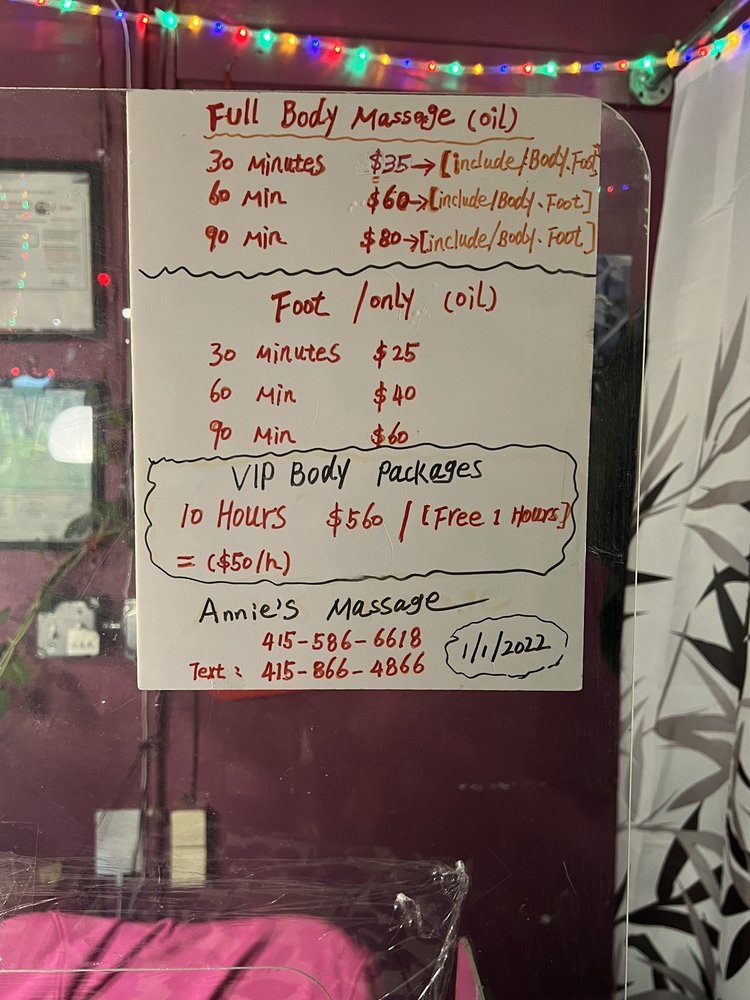 Full Body Massage (oil)
30 Minutes $35→[include/Body.Foot]
60 Min $60→[include/Body.Foot]
90 Min $80→[include/Body.Foot]
Foot /only (oil)
30 Minutes $25
60 Min $40
90 Min $60
VIP Body Packages
10 Hours $560 / [Free 1 Hours]
= ($50/h)
Annie's Massage
415-586-6618
Text: 415-866-4866
1/1/2022